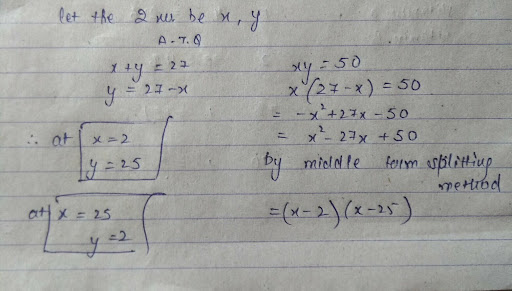 let the 2 nu be x, y
A.T.Q
x+y = 27
y = 27-x
xy = 50
x(27-x) = 50
= -x²+27x-50
= x²-27x+50
by middle term splitting method
=(x-2)(x-25)
∴ at x=2
y=25
at x = 25
y=2